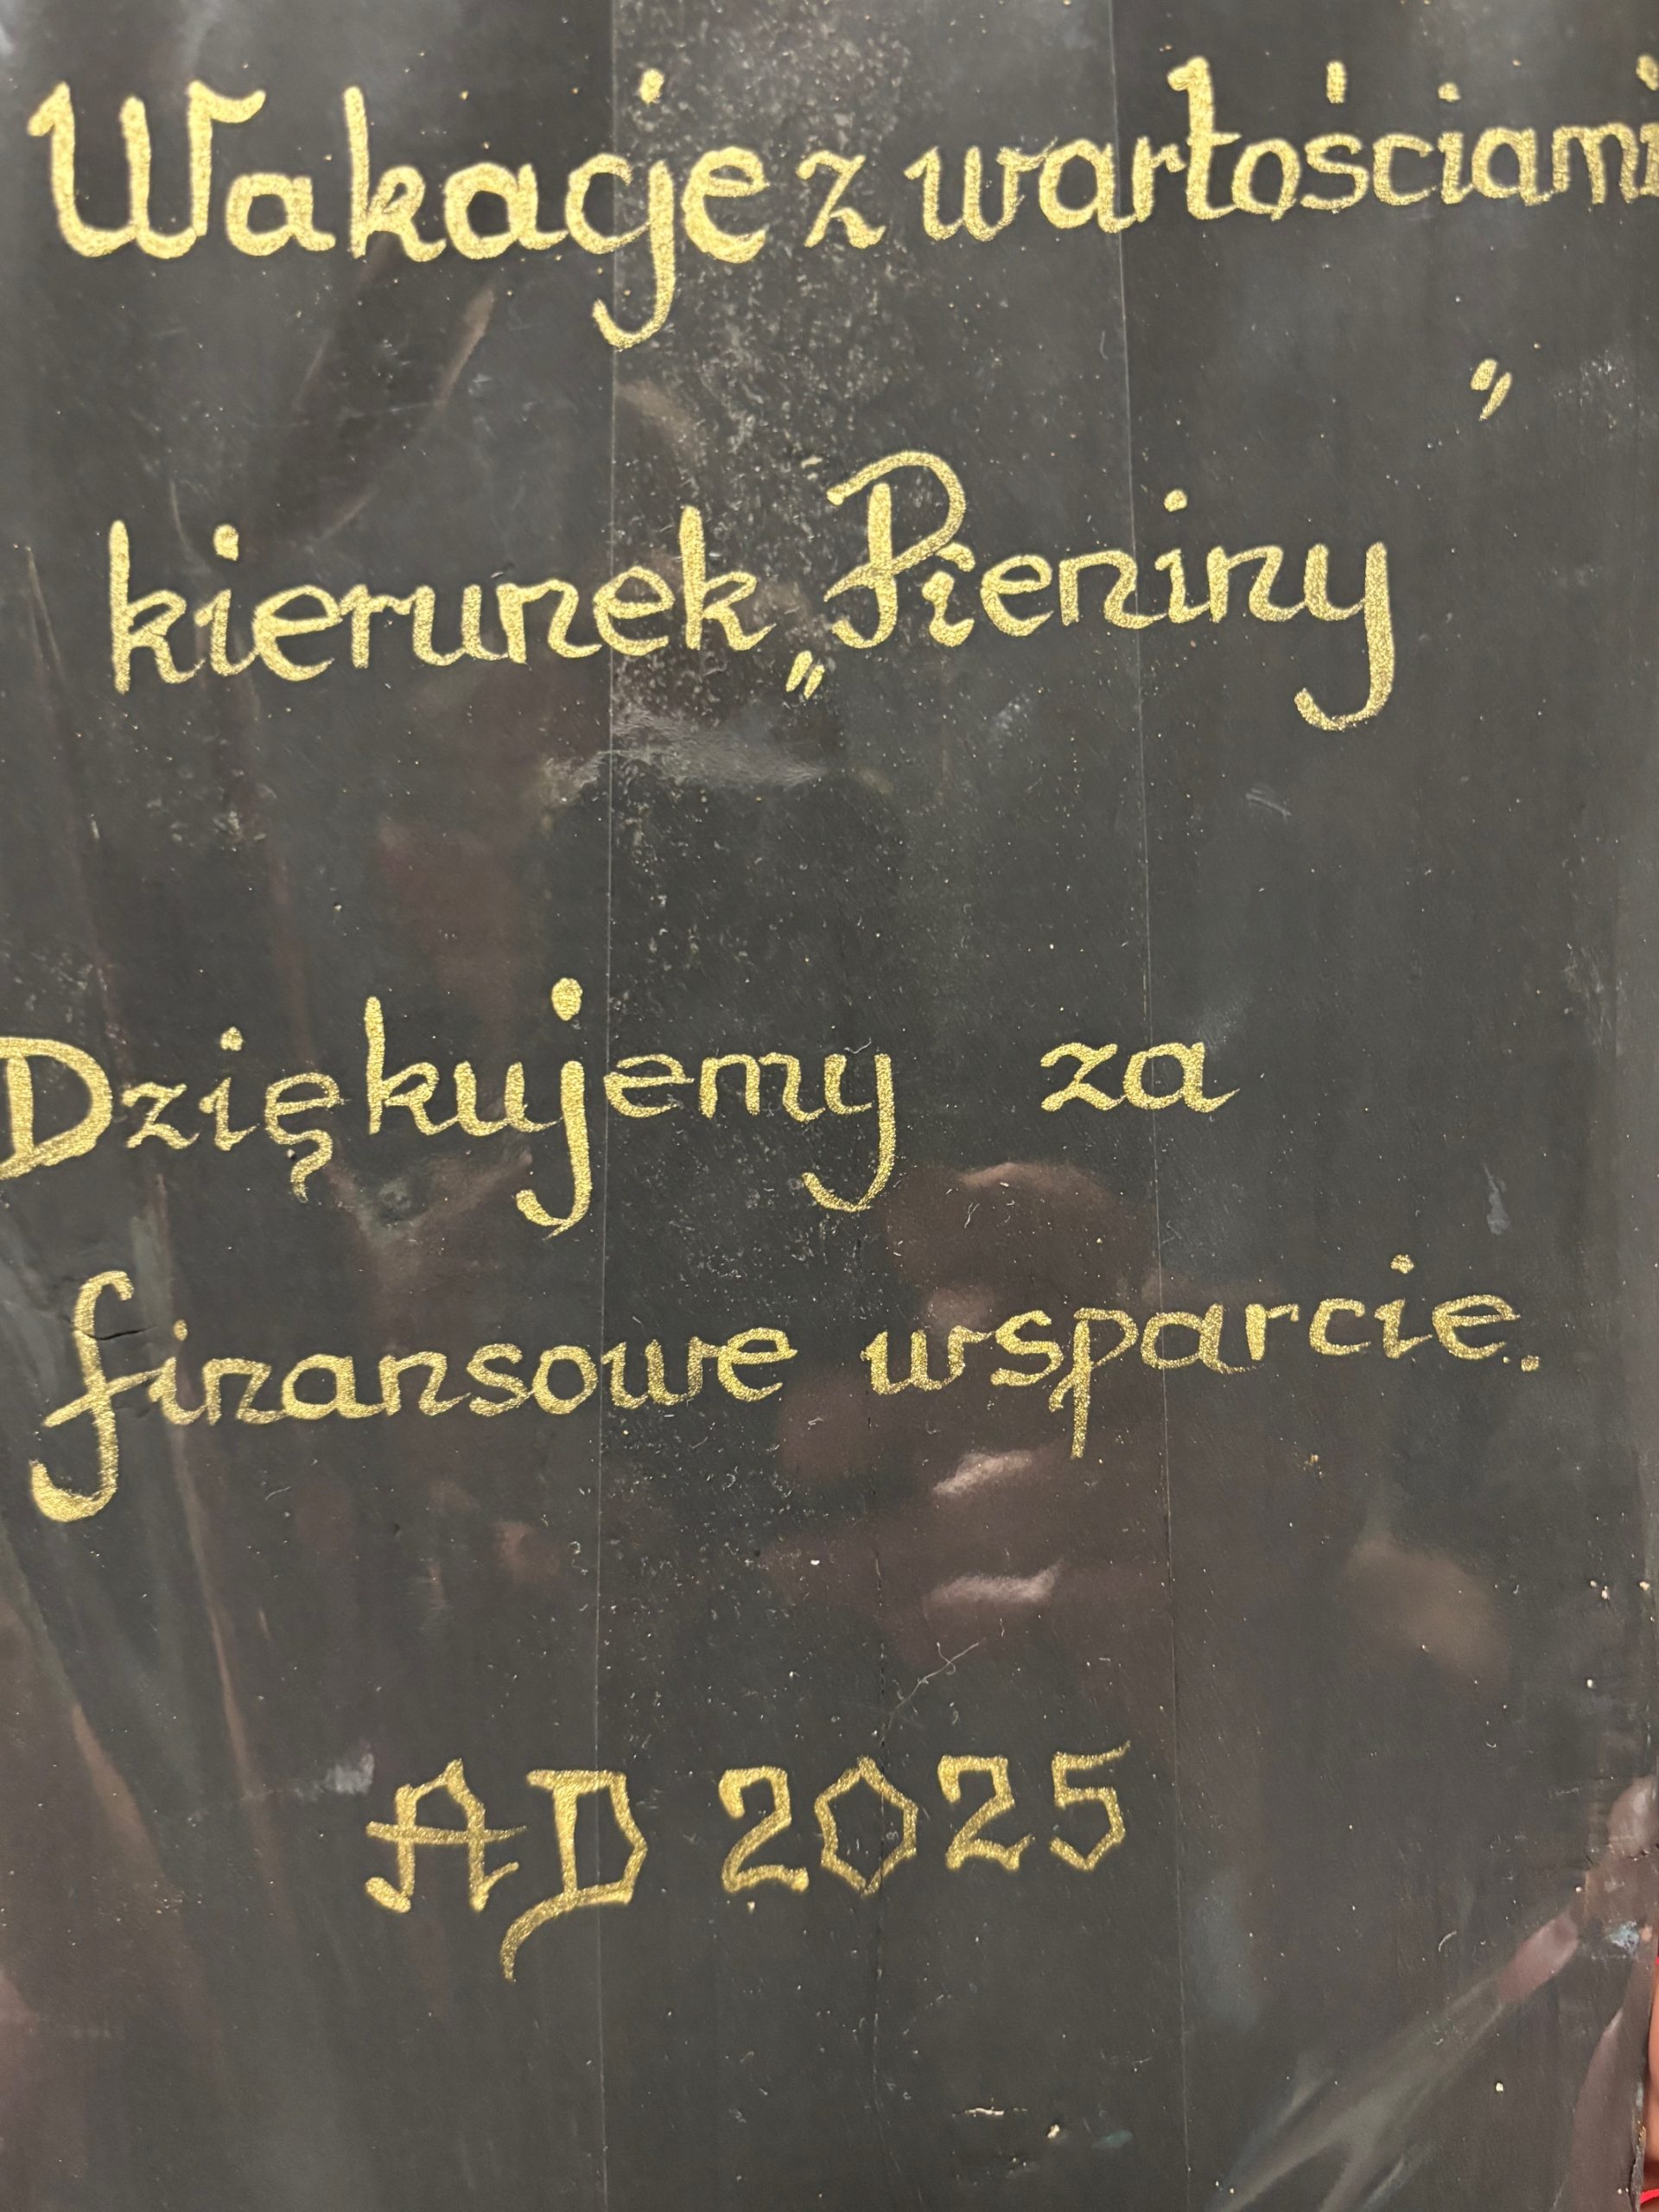 Wakacje z wartościami
kierunek „Pieniny”
Dziękujemy za
finansowe wsparcie.
AD 2025